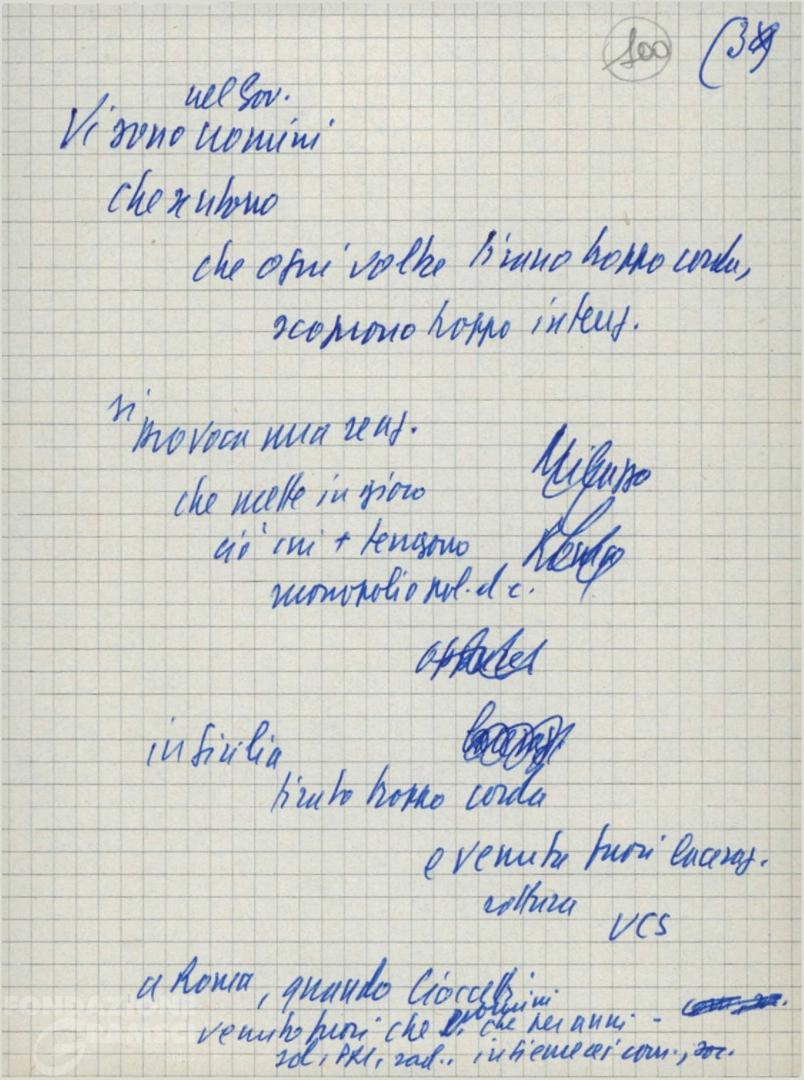 100 (38)
nel Gov.
Vi sono uomini
che sentono
che ogni volta tirano troppo corda,
scoprono troppo intenz.
si provoca una reaz.
che mette in gioco
ciò cui + tengono
monopolio pol. d.c.
Milazzo
in Sicilia
tirato troppo corda
e venuta fuori laceraz.
rottura
UCS
a Roma, quando Cioccetti
venuto fuori che uomini che per anni -
sol, PRI, rad., insieme ai com.,